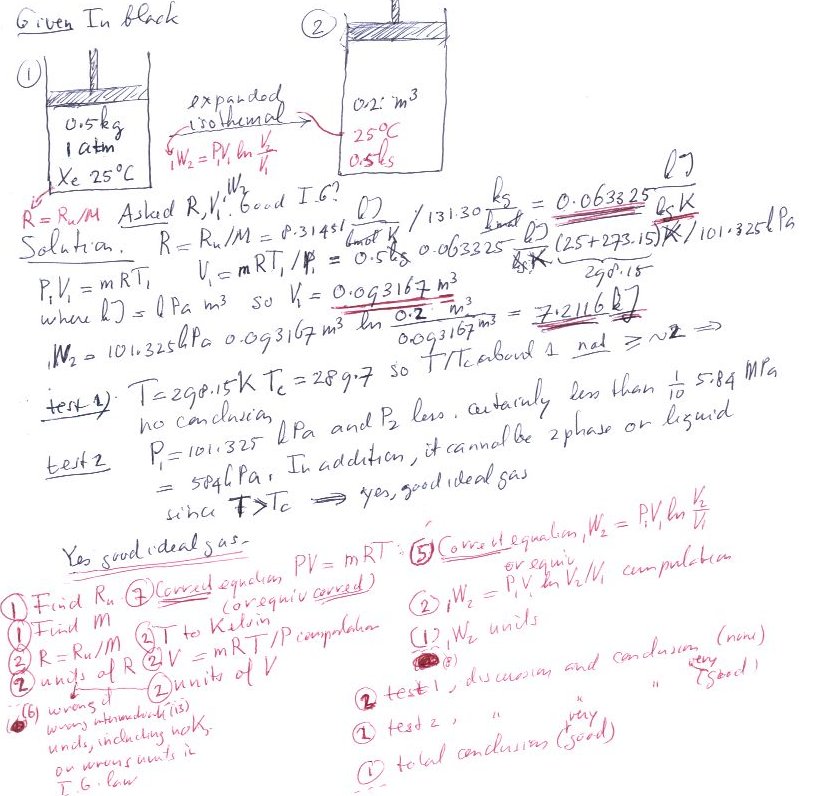 Given In black
①
②
0.5kg
1 atm
Xe 25°C
expanded
isothermal
₁W₂ = P₁V₁ ln V₂/V₁
0.2 m³
25°C
0.5kg
R = Ru/M Asked R, V₁, ₁W₂ Good I.G?
Solution. R = Ru/M = 8.31451 kJ/kmol K / 131.30 kg/kmol = 0.063325 kJ/kg K
P₁V₁ = mRT₁ V₁ = mRT₁/P₁ = 0.5kg 0.063325 kJ/kg K (25+273.15)K / 101.325 kPa
298.15
where kJ = kPa m³ so V₁ = 0.093167 m³
₁W₂ = 101.325kPa 0.093167 m³ ln 0.2 m³/0.093167 m³ = 7.2116 kJ
test 1) T = 298.15K Tc = 289.7 so T/Tc about 1 not ≥ ~2 ⇒
no conclusion
test 2 P₁ = 101.325 kPa and P₂ less. certainly less than 1/10 5.84 MPa
= 584kPa. In addition, it cannot be 2 phase or liquid
since T > Tc ⇒ yes, good ideal gas
Yes good ideal gas.
① Find Ru ⑦ Correct equation PV = mRT
(or equiv correct)
① Find M
② R = Ru/M ② T to Kelvin
② units of R ② V = mRT/P computation
② units of V
(6) wrong if
wrong (13)
units, including no K,
or wrong units in
I.G. law
⑤ Correct equation ₁W₂ = P₁V₁ ln V₂/V₁
or equiv
② ₁W₂ = P₁V₁ ln V₂/V₁ computation
① ₁W₂ units
(8)
② test 1, discussion and conclusion (none)
② test 2, " " " (very good)
① total conclusion (very good)